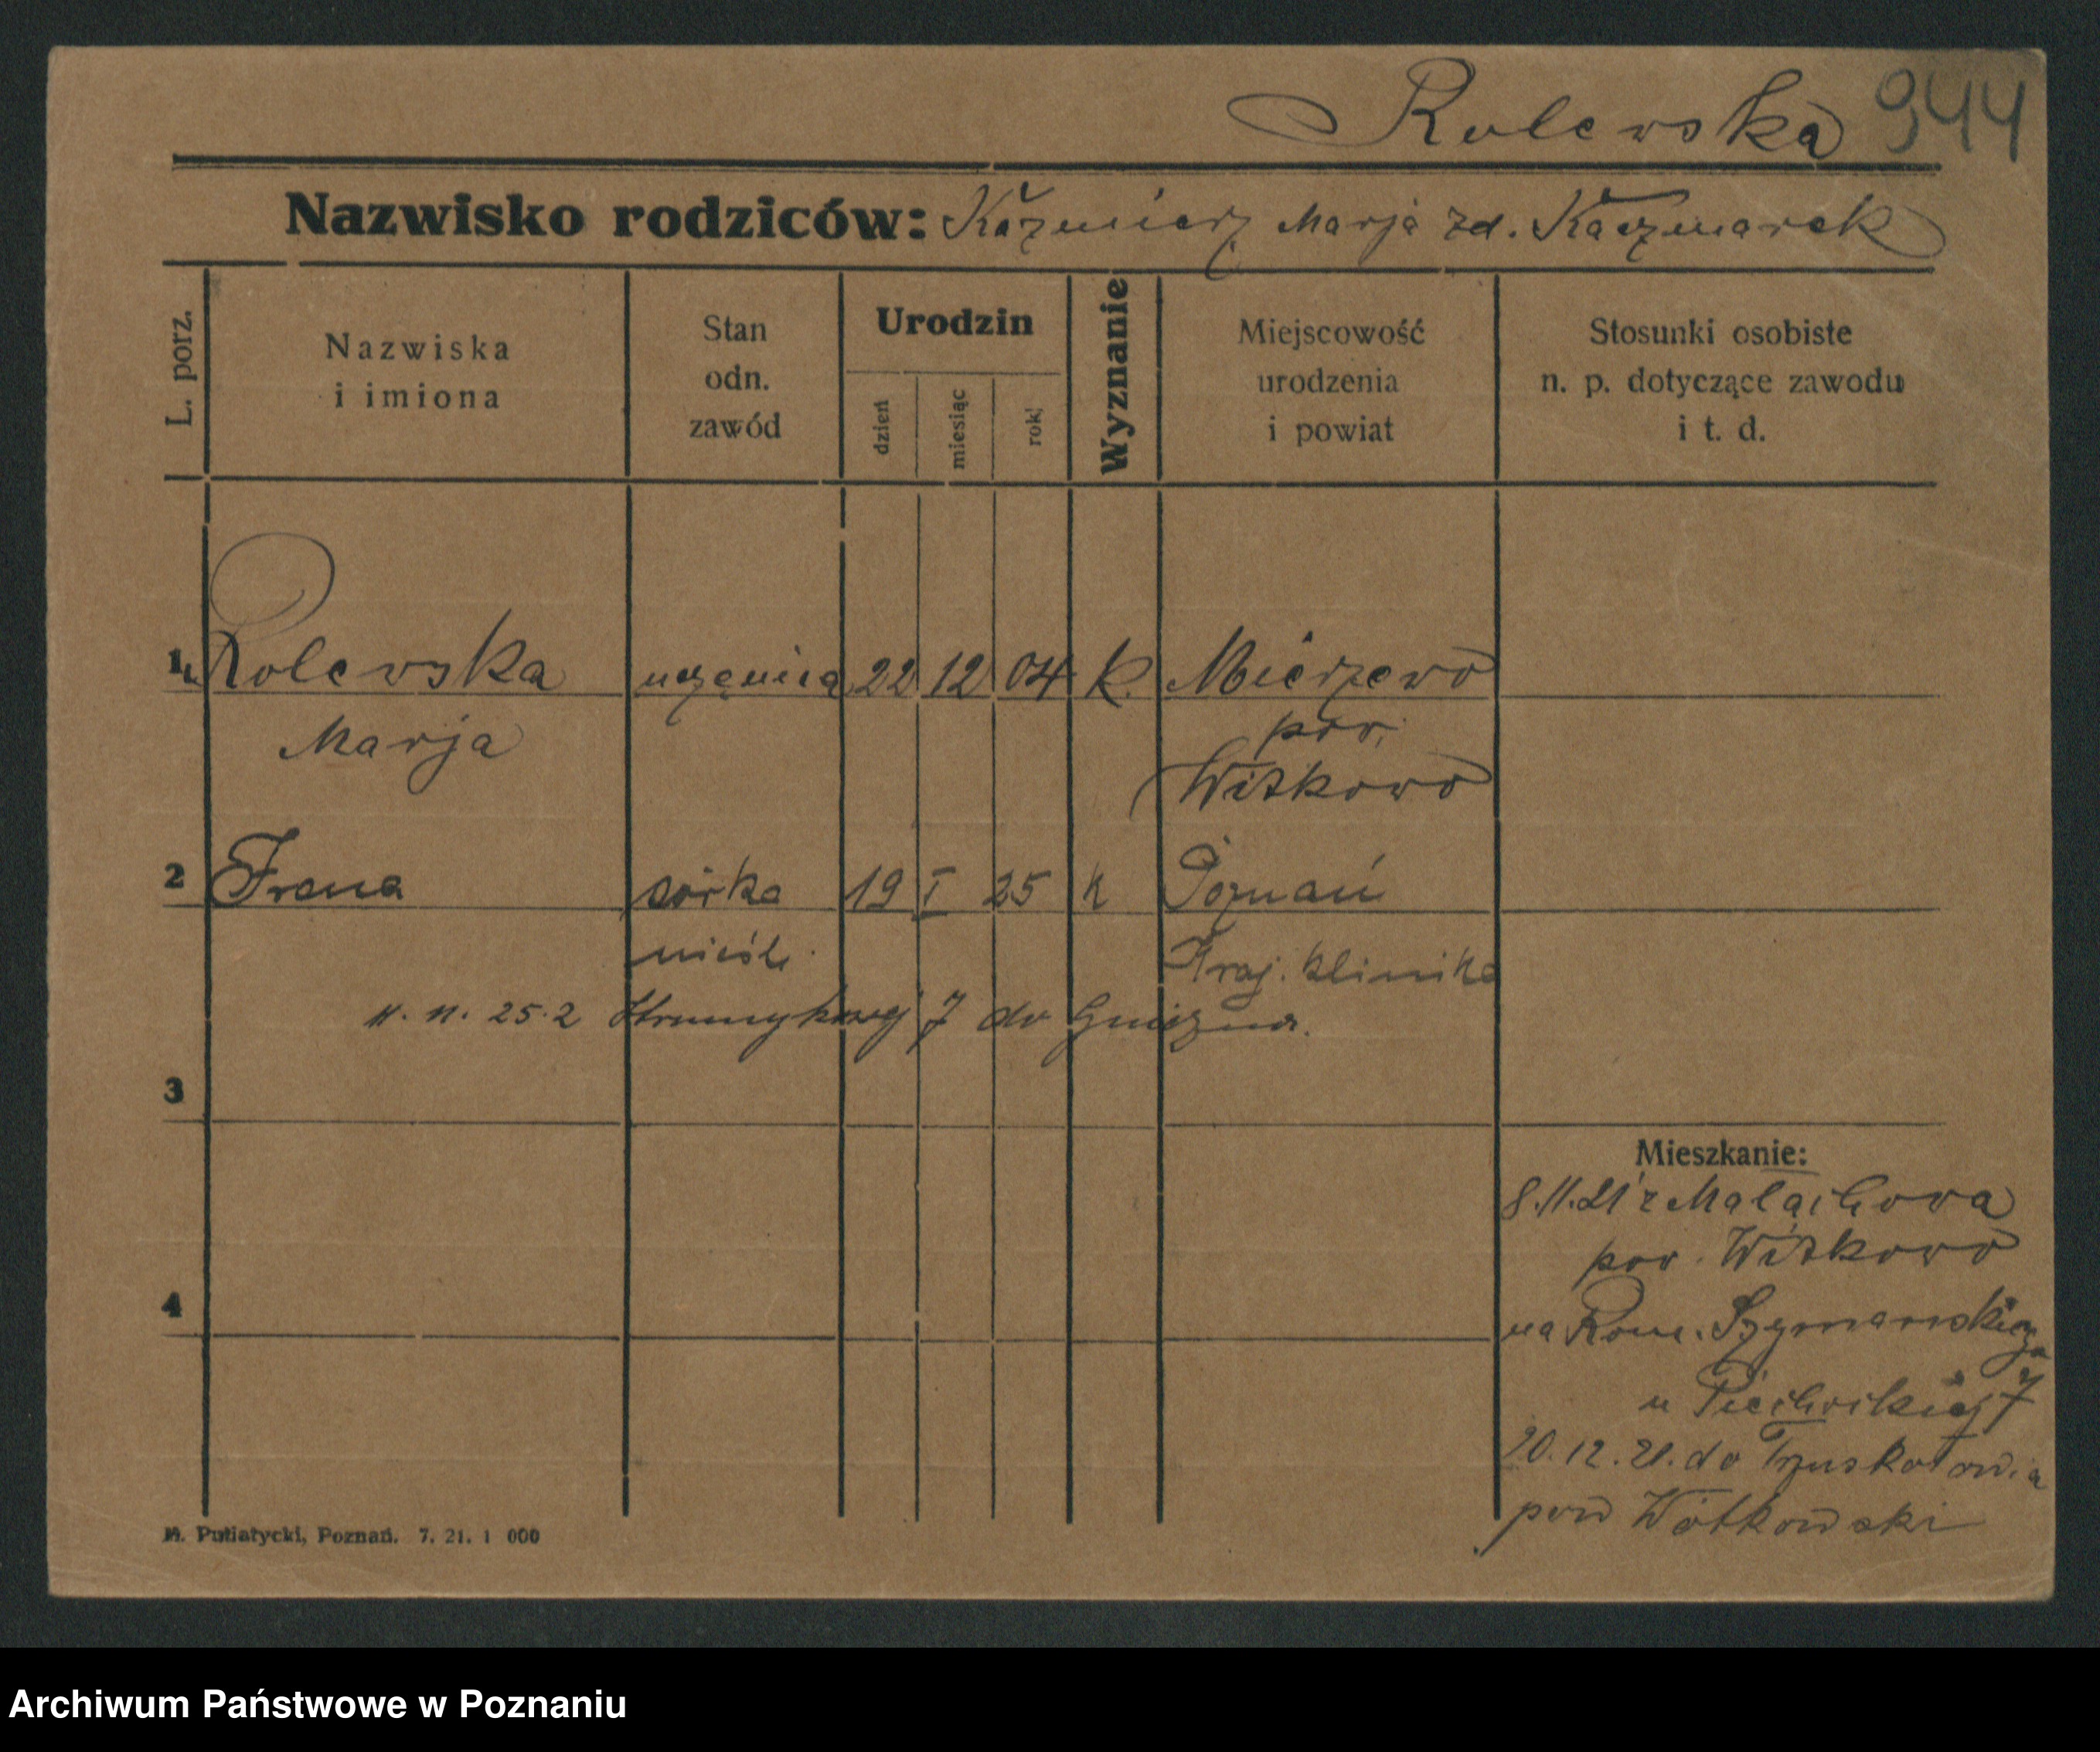 Rolewska 944
Nazwisko rodziców: Kaźmierz Marja zd. Kaczmarek
L. porz.
Nazwiska
i imiona
Stan
odn.
zawód
Urodzin
dzień
miesiąc
rok
Wyznanie
Miejscowość
urodzenia
i powiat
Stosunki osobiste
n. p. dotyczące zawodu
i t. d.
1 Rolewska uczenica 22 12 04 k. Mierzewo
Marja pow.
Witkowo
2 Irena córka 19 I 25 k Poznań
nieśl. Kraj. klinika
25.2 Strumykowej 7 do Gniezna.
3
4
Mieszkanie:
8.11.21 z Małachowa
pow. Witkowo
na Rom. Szymańskiego 7
u
20.12.21. do Trzuskołowia
pow Witkowski
M. Putiatycki, Poznań. 7. 21. 1 000
Archiwum Państwowe w Poznaniu